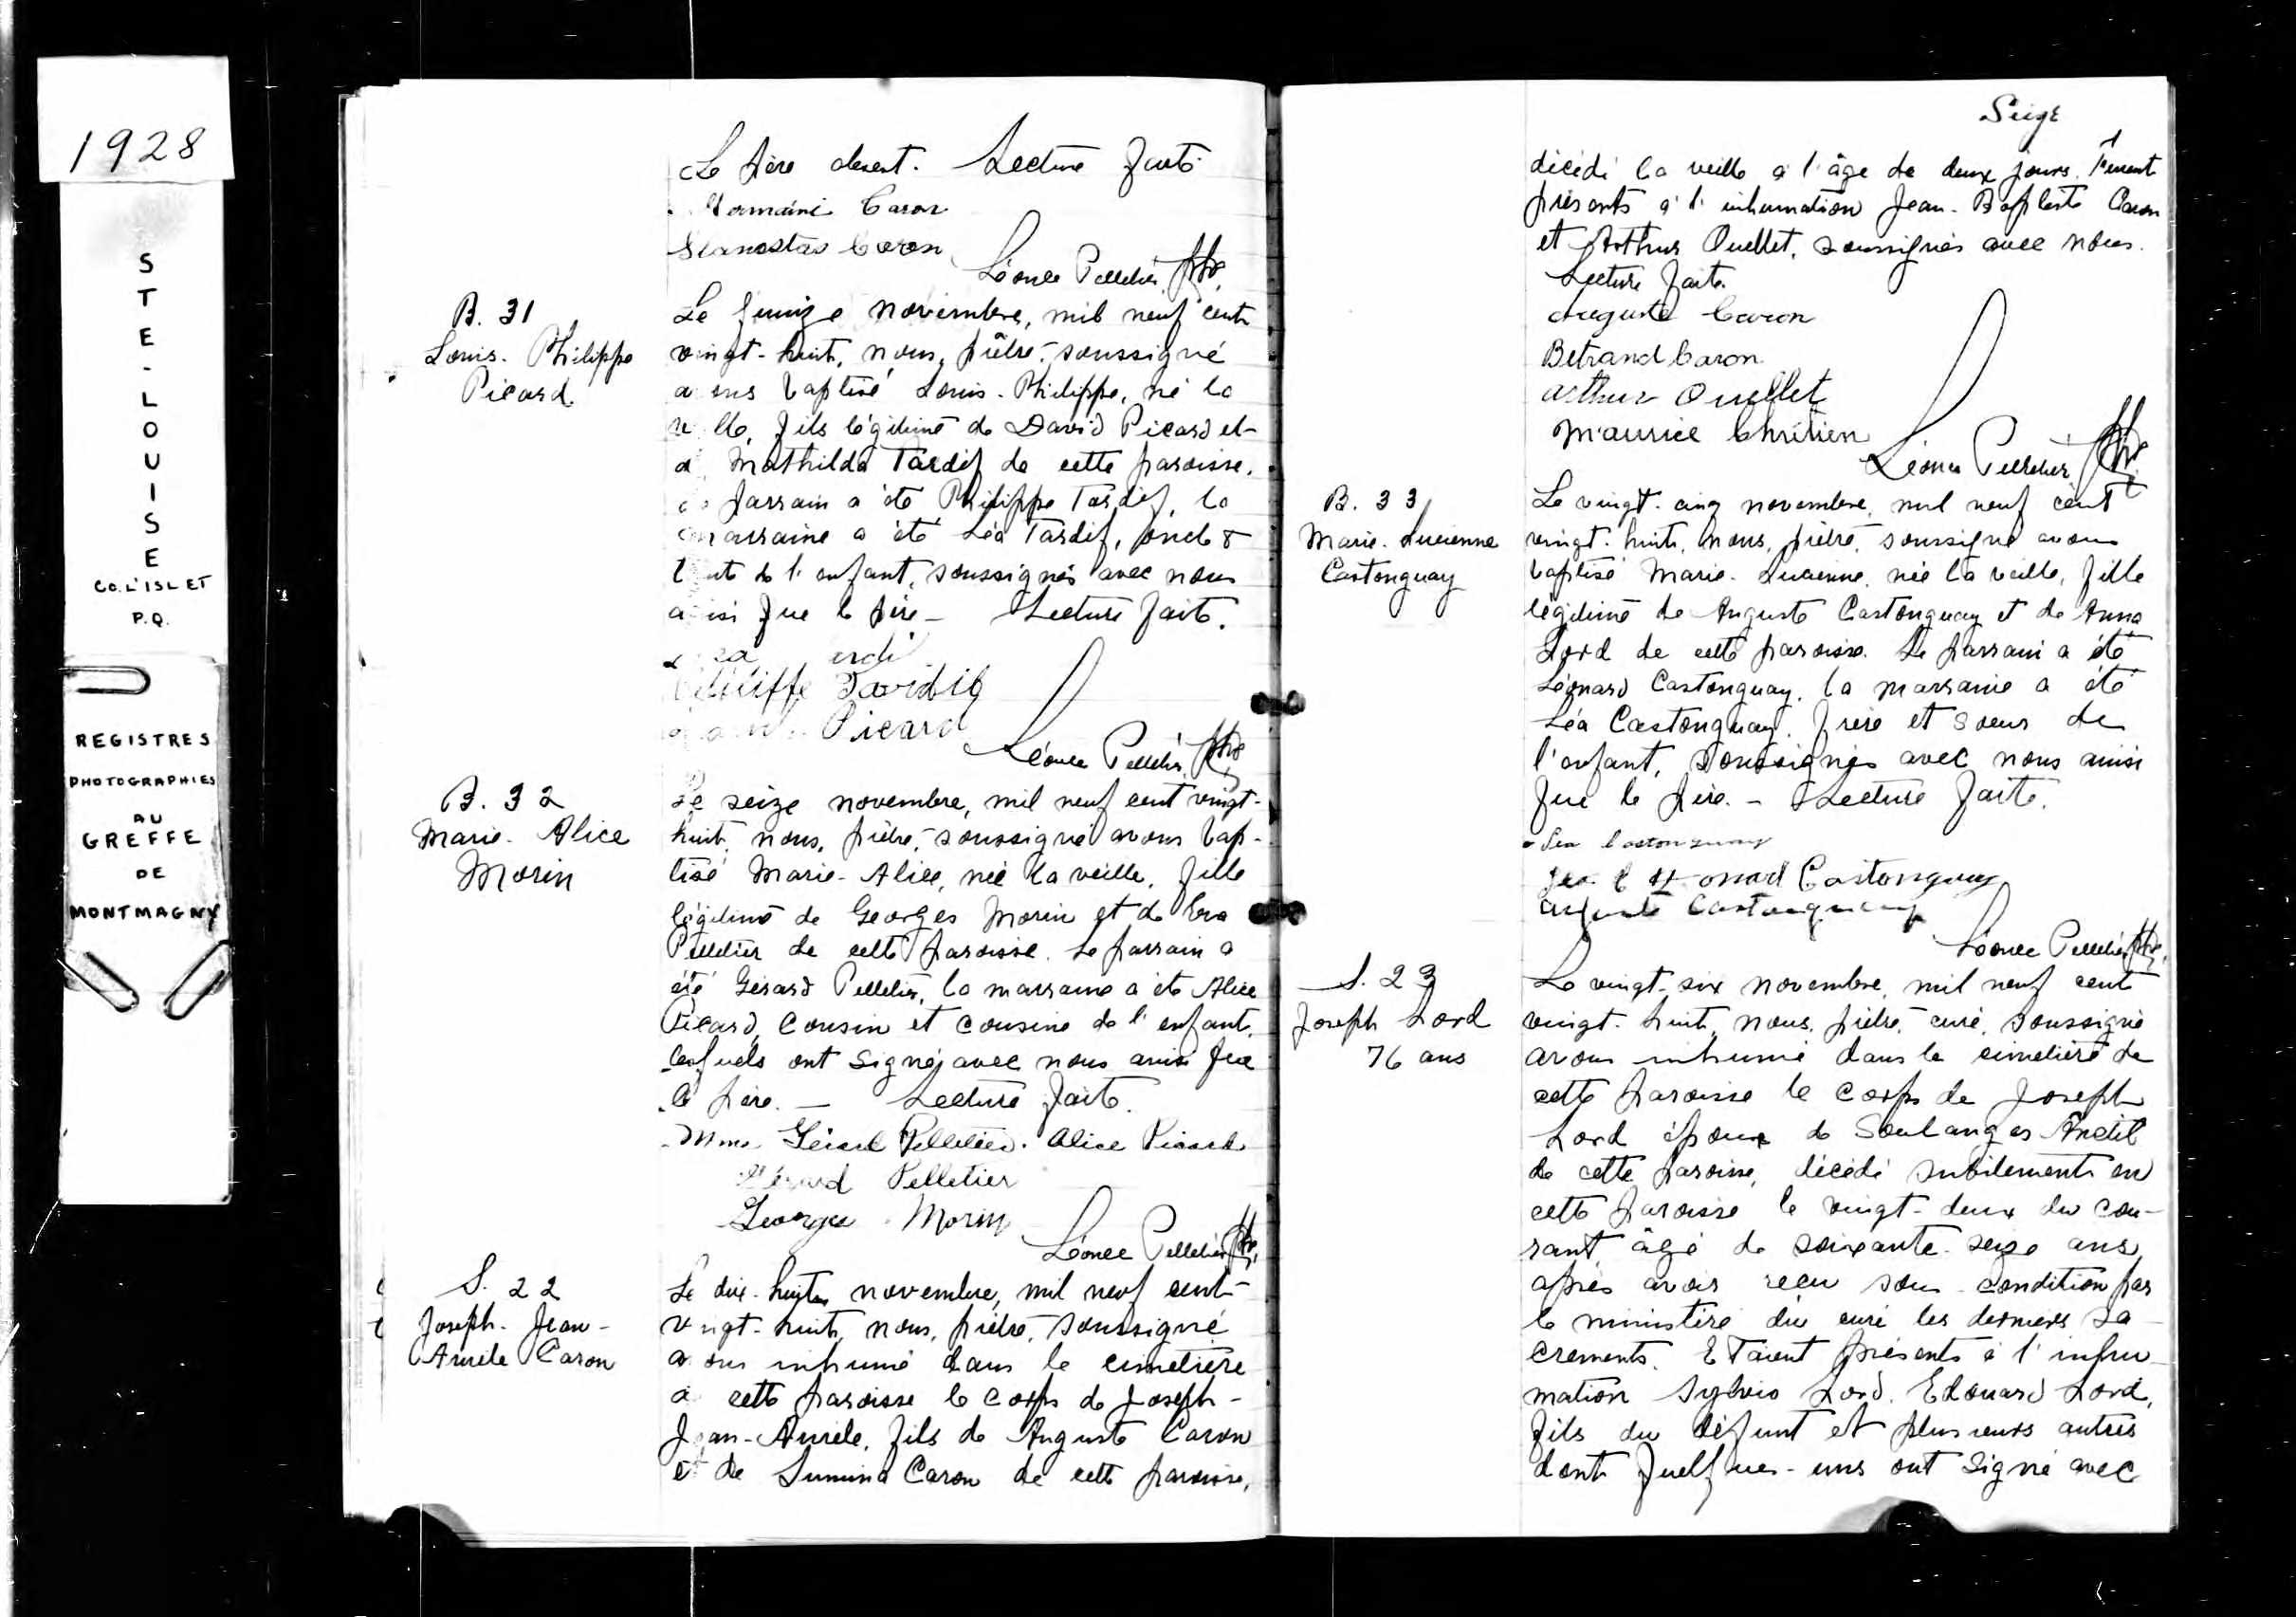 1928
STE-LOUISE
CO. L'ISLET
P.Q.
REGISTRES
PHOTOGRAPHIES
AU
GREFFE
DE
MONTMAGNY
Le père absent. Lecture faite
Germaine Caron
Caron
Léonce Pelletier, Ptre.
B. 31
Louis-Philippe
Picard.
Le quinze novembre, mil neuf cent
vingt-huit, nous, prêtre, soussigné
avons baptisé Louis-Philippe, né la
veille, fils légitime de David Picard et
de Mathilda Tardif de cette paroisse.
Le parrain a été Philippe Tardif, la
marraine a été Léa Tardif, oncle &
tante de l'enfant, soussignés avec nous
ainsi que le père - Lecture faite.
Picard
Léonce Pelletier, Ptre
B. 32
Marie-Alice
Morin
Le seize novembre, mil neuf cent vingt-
huit, nous, prêtre, soussigné avons bap-
tisé Marie-Alice, née la veille, fille
légitime de Georges Morin et de Eva
Pelletier de cette paroisse. Le parrain a
été Gérard Pelletier, la marraine a été Alice
Picard, cousin et cousine de l'enfant,
lesquels ont signé avec nous ainsi que
le père. - Lecture faite.
Mme Gérard Pelletier. Alice Picard
Gérard Pelletier
Georges Morin
Léonce Pelletier Ptre,
S. 22
Joseph-Jean-
Aurèle Caron
Le dix-huit novembre, mil neuf cent
vingt-huit, nous, prêtre, soussigné
avons inhumé dans le cimetière
de cette paroisse le corps de Joseph-
Jean-Aurèle, fils de Auguste Caron
et de Lumina Caron de cette paroisse,
Seize
décédé la veille à l'âge de deux jours. Furent
présents à l'inhumation Jean-Baptiste Caron
et Arthur Ouellet, soussignés avec nous.
Lecture faite.
Auguste Caron
Betrand Caron
Arthur Ouellet
Maurice Chrétien
Léonce Pelletier Ptre.
B. 33
Marie-Lucienne
Castonguay
Le vingt-cinq novembre, mil neuf cent
vingt-huit, nous, prêtre, soussigné avons
baptisé Marie-Lucienne, née la veille, fille
légitime de Auguste Castonguay et de Anna
Lord de cette paroisse. Le parrain a été
Léonard Castonguay, la marraine a été
Léa Castonguay, frère et soeur de
l'enfant, soussignés avec nous ainsi
que le père. - Lecture faite.
Léa Castonguay
Castonguay
Auguste Castonguay
Léonce Pelletier Ptre.
S. 23
Joseph Lord
76 ans
Le vingt-six novembre, mil neuf cent
vingt-huit, nous, prêtre, curé, soussigné
avons inhumé dans le cimetière de
cette paroisse le corps de Joseph
Lord époux de Soulanges Anctil
de cette paroisse, décédé subitement en
cette paroisse le vingt-deux du cou-
rant, âgé de soixante-seize ans,
après avoir reçu sous condition par
le ministère du curé les derniers sa-
crements. Etaient présents à l'inhu-
mation Sylvio Lord, Edouard Lord,
fils du défunt et plusieurs autres
dont quelques-uns ont signé avec